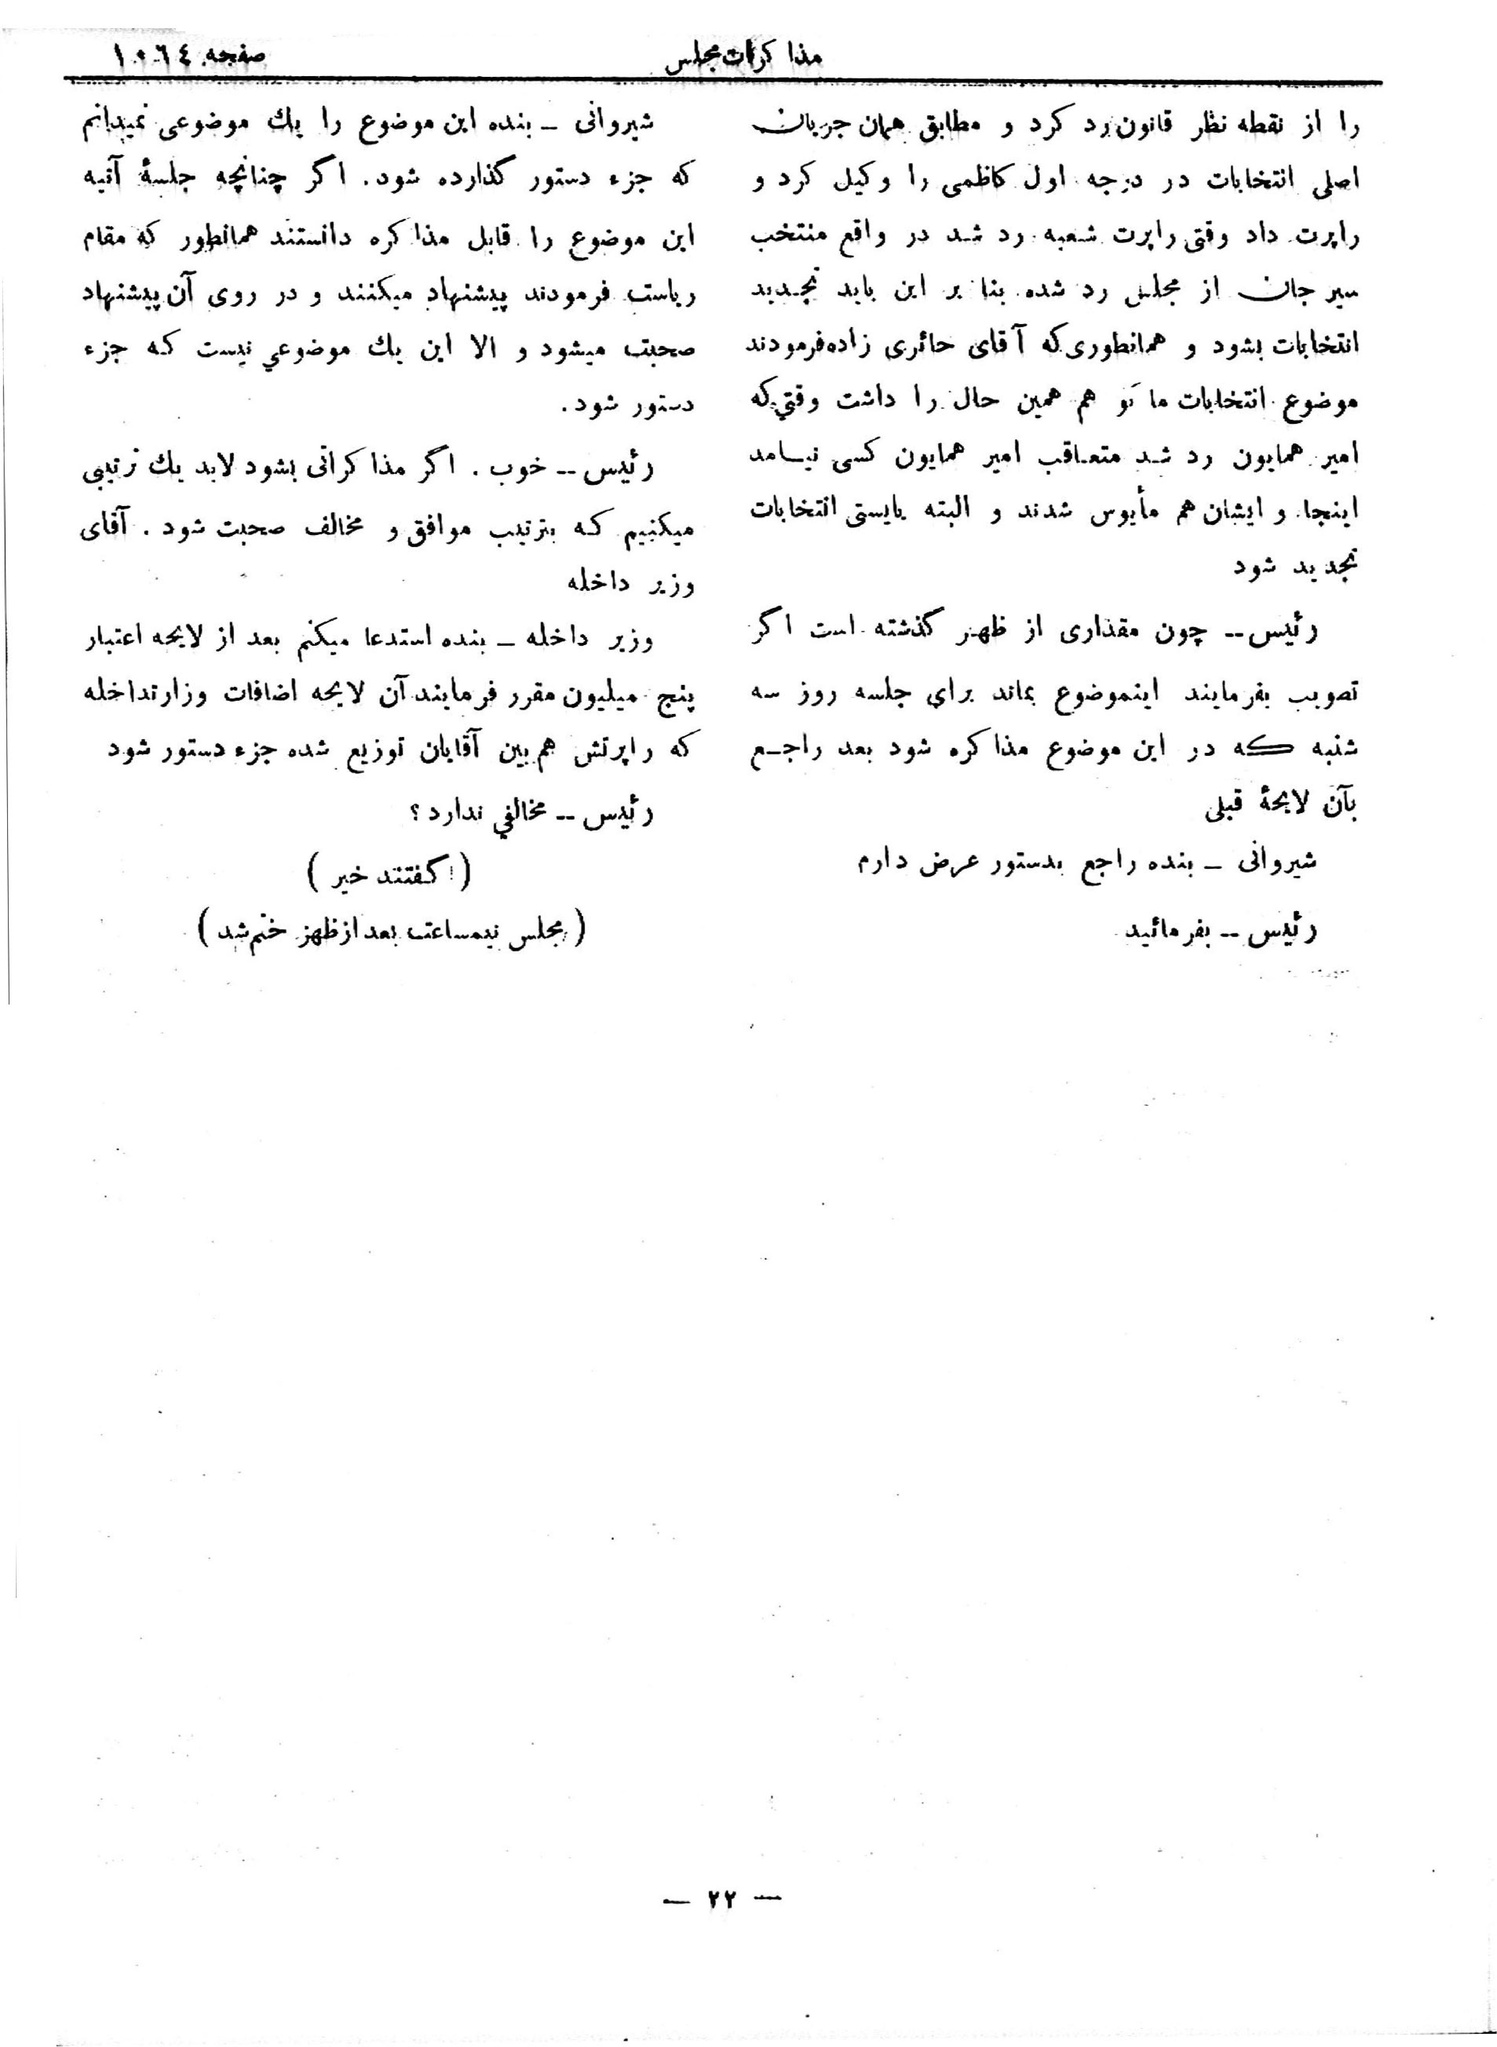 مذاکرات مجلس
صفحه ١٠٦٤
را از نقطه نظر قانون رد کرد و مطابق همان جریان
اصلی انتخابات در درجه اول کاظمی را وکیل کرد و
راپرت داد وقتی راپرت شعبه رد شد در واقع منتخب
سیرجان از مجلس رد شده بنا بر این باید تجدید
انتخابات بشود و همانطوری که آقای حائری زاده فرمودند
موضوع انتخابات ما کو هم همین حال را داشت وقتی که
امیر همایون رد شد متعاقب امیر همایون کسی نیامد
اینجا و ایشان هم مأیوس شدند و البته بایستی انتخابات
تجدید شود
رئیس -- چون مقداری از ظهر گذشته است اگر
تصویب بفرمایند اینموضوع بماند برای جلسه روز سه
شنبه که در این موضوع مذاکره شود بعد راجع
بآن لایحهٔ قبلی
شیروانی - بنده راجع بدستور عرض دارم
رئیس -- بفرمائید
شیروانی - بنده این موضوع را یك موضوعی نمیدانم
که جزء دستور گذارده شود. اگر چنانچه جلسهٔ آتیه
این موضوع را قابل مذاکره دانستند همانطور که مقام
ریاست فرمودند پیشنهاد میکنند و در روی آن پیشنهاد
صحبت میشود و الا این یك موضوعی نیست که جزء
دستور شود.
رئیس -- خوب . اگر مذاکراتی بشود لابد یك ترتیبی
میکنیم که بترتیب موافق و مخالف صحبت شود . آقای
وزیر داخله
وزیر داخله - بنده استدعا میکنم بعد از لایحه اعتبار
پنج میلیون مقرر فرمایند آن لایحه اضافات وزارتداخله
که راپرتش هم بین آقایان توزیع شده جزء دستور شود
رئیس -- مخالفی ندارد ؟
( گفتند خیر )
( مجلس نیمساعت بعد از ظهر ختم شد )
— ٢٢ —